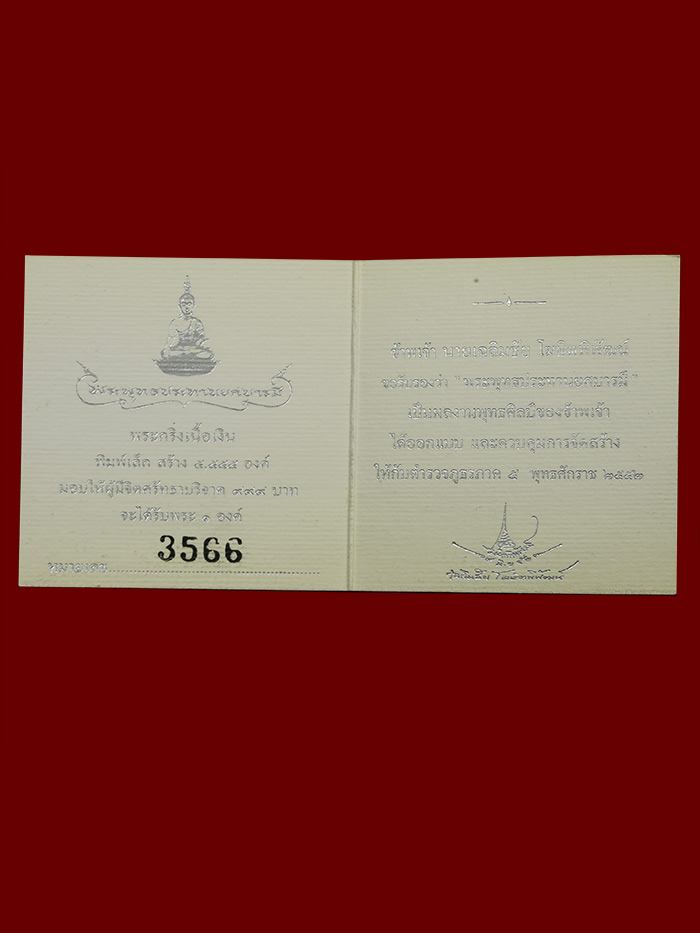 พระพุทธประทานยศบารมี
พระกริ่งเนื้อเงิน
พิมพ์เล็ก สร้าง ๕,๕๕๕ องค์
มอบให้ผู้มีจิตศรัทธาบริจาค ๙๙๙ บาท
จะได้รับพระ ๑ องค์
หมายเลข 3566
ข้าพเจ้า นายเฉลิมชัย โฆษิตพิพัฒน์
ขอรับรองว่า "พระพุทธประทานยศบารมี"
เป็นผลงานพุทธศิลป์ของข้าพเจ้า
ได้ออกแบบ และควบคุมการจัดสร้าง
ให้กับตำรวจภูธรภาค ๕ พุทธศักราช ๒๕๕๒
เฉลิมชัย โฆษิตพิพัฒน์